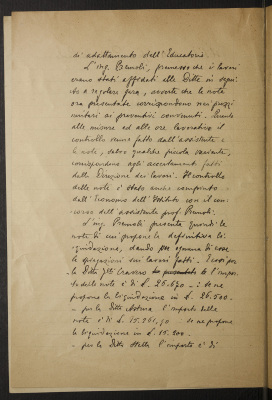 di adattamento dell'Educatorio.
L'ing. Premoli, premesso che i lavori
erano stati affidati alle Ditte in segui-
to a regolare gara, avverte che le note
ora presentate corrispondono nei prezzi
unitari ai preventivi convenuti. Quanto
alle misure ed alle ore lavorative il
controllo venne fatto dall'assistente e
le note, salvo qualche piccola variante,
corrispondono agli accertamenti fatti
dalla Direzione dei lavori. Il controllo
delle note è stato anche compiuto
dall'Economo dell'Istituto con il con-
corso dell'assistente prof.
L'ing. Premoli presenta quindi le
note di cui propone la definitiva li-
quidazione, dando per ognuna di esse
le spiegazioni sui lavori fatti. Ecco: per
la Ditta F.lli l'impor-
to delle note è di £. 26.670 - e se ne
propone la liquidazione in £. 26.500.
- per la Ditta l'importo della
nota è di £. 15.561,50 se ne propone
la liquidazione in £. 15.200
- per la Ditta Stella l'importo è di